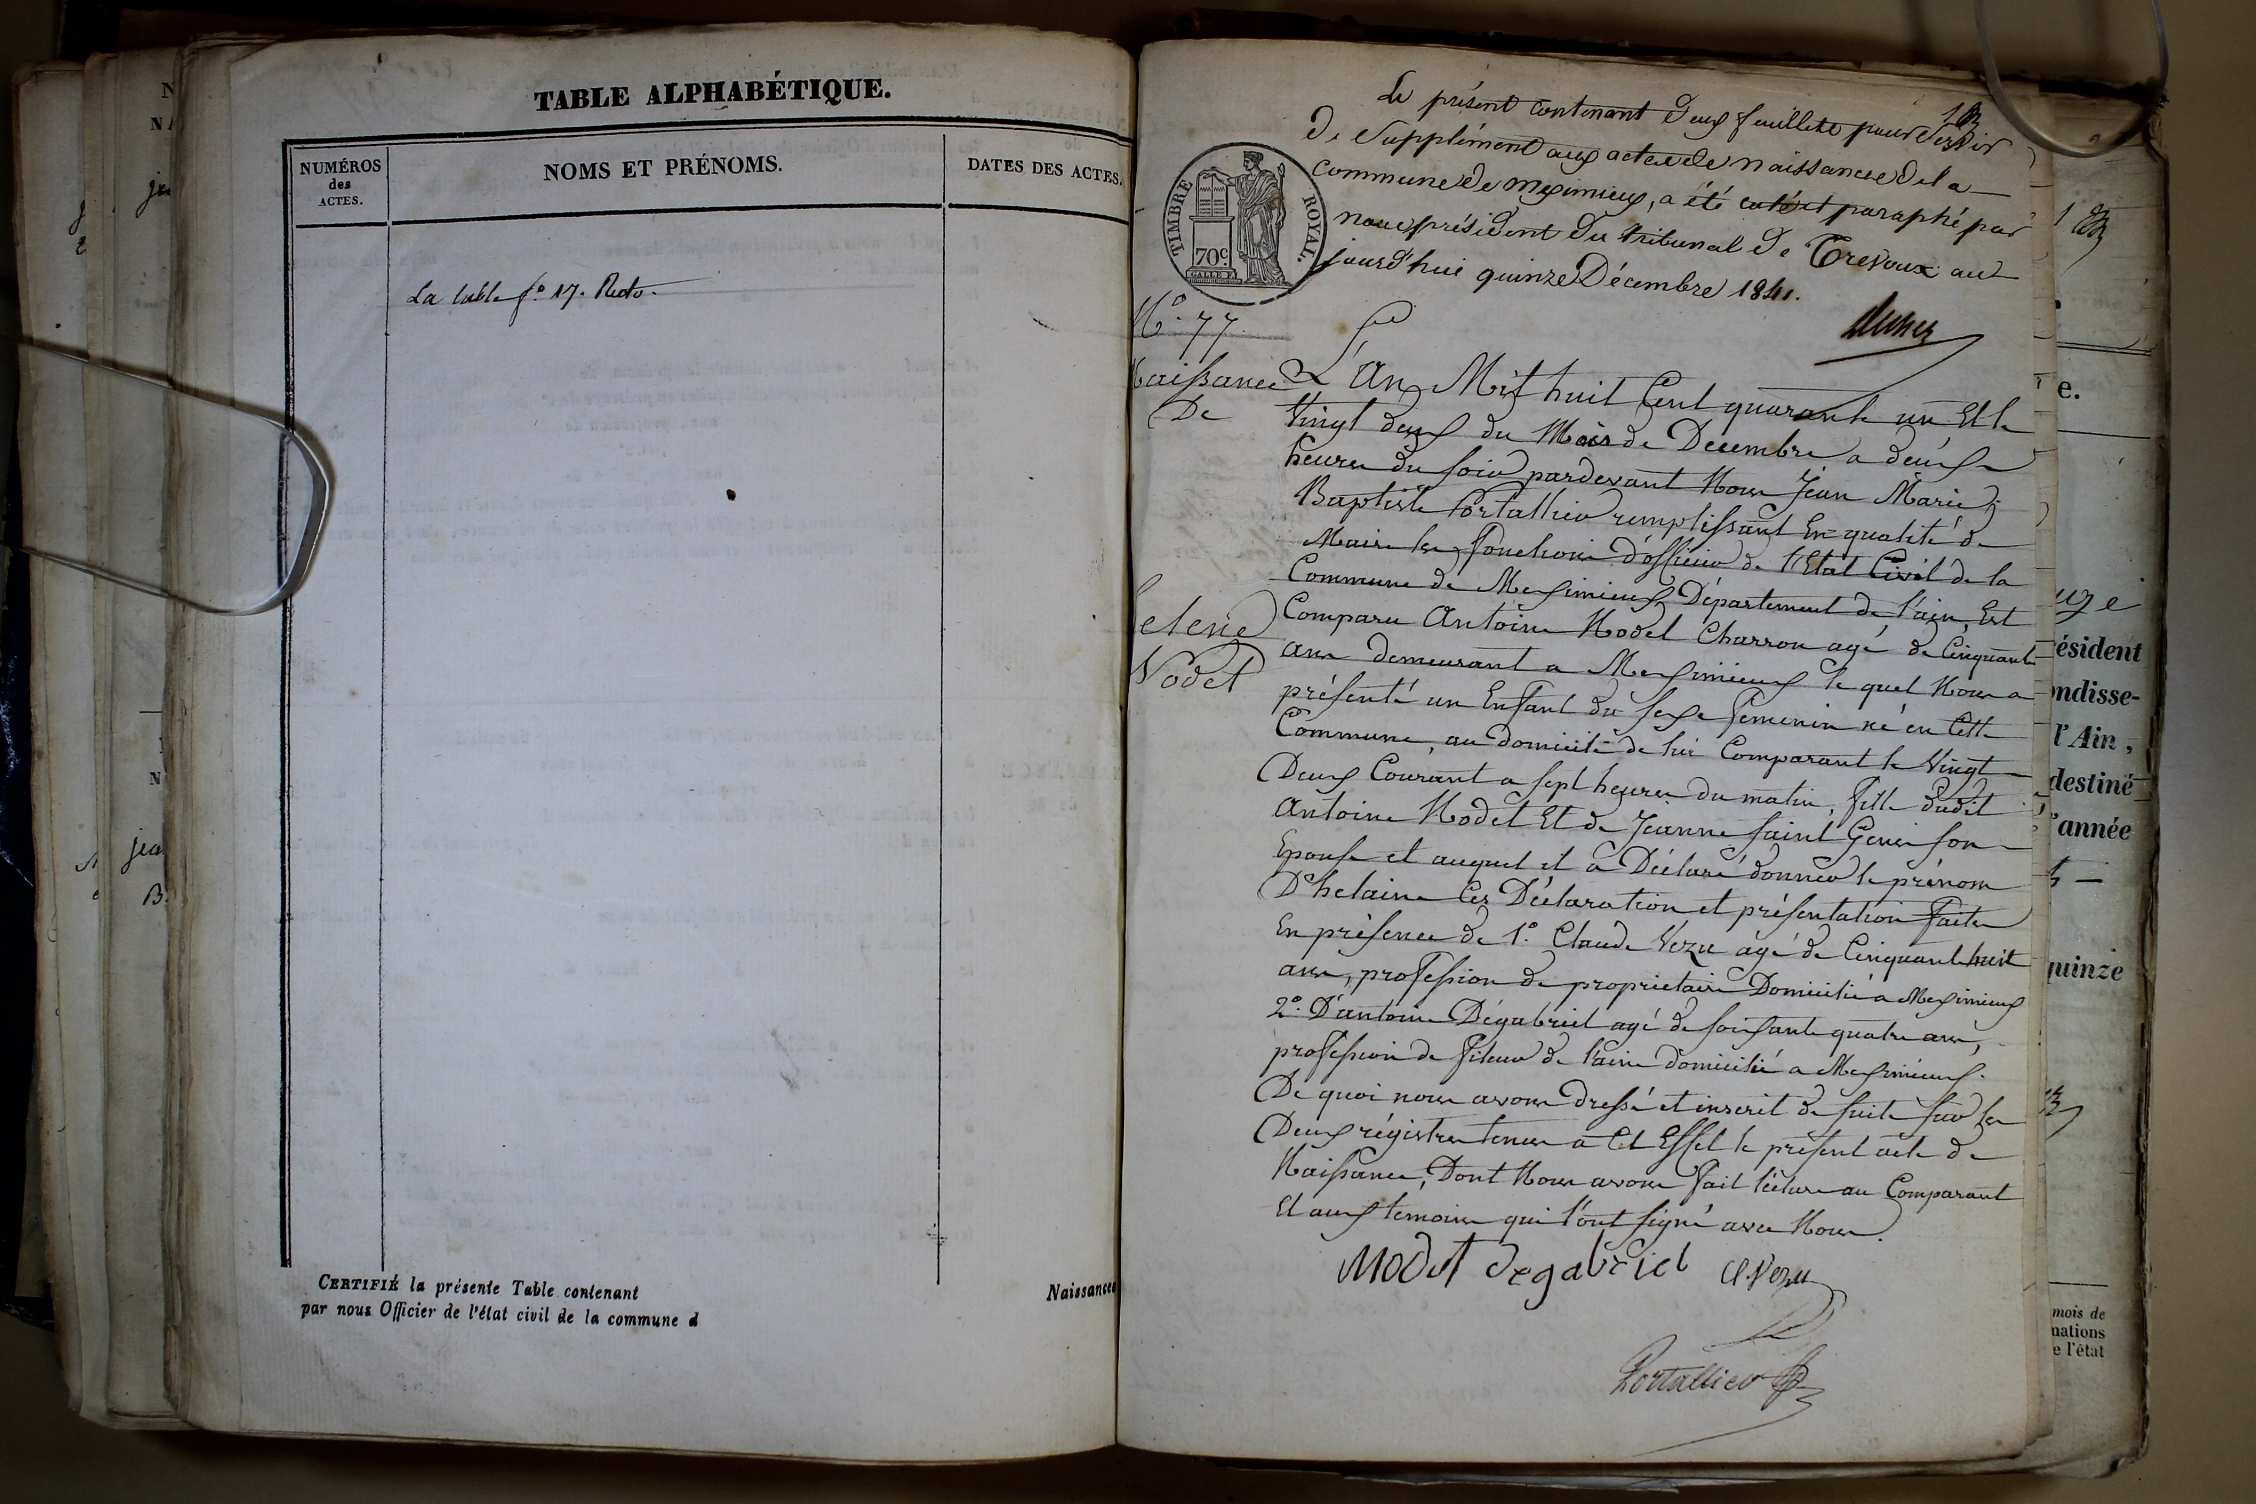 TABLE ALPHABÉTIQUE.
NUMÉROS
des
ACTES.
NOMS ET PRÉNOMS.
DATES DES ACTES.
La table f.° 17. Recto.
CERTIFIÉ la présente Table contenant
par nous Officier de l'état civil de la commune d
Naissances
Le présent contenant deux feuillets pour servir
de supplément aux actes de naissance de la
commune de Meximieux, a été coté et paraphé par
nous président du tribunal de Trevoux au
jourd'hui quinze Décembre 1841.
TIMBRE ROYAL.
70c.
N.° 77
Naissance
De
helene
Nodet
L'An Mil huit Cent quarante un Et le
Vingt deux du Mois de Decembre a deux
heures du soir pardevant Nous Jean Marie
Baptiste Portallier remplissant En qualité de
Maire les fonctions d'officier de l'Etat Civil de la
Commune de Meximieux Département de l'ain, Est
Comparu Antoine Nodet Charron agé de Cinquante
ans demeurant a Meximieux le quel Nous a
présenté un Enfant du sexe femenin né en Cette
Commune, au domicile de lui Comparant le Vingt
Deux Courant a sept heures du matin, fille dudit
Antoine Nodet Et de Jeanne saint Genis son
Epouse et auquel il a Déclaré donner le prénom
D'helaine Ces Déclaration et présentation faites
En présence de 1.° Claude Vezu agé de Cinquante huit
ans, profession de propriétaire Domicilié a Meximieux
2.° D'antoine Dégabriel agé de soixante quatre ans,
profession de fileur de laine domicilié a Meximieux.
De quoi nous avons dressé et inscrit de suite sur les
Deux régistres tenus a Cet Effet le présent acte de
Naissance, Dont Nous avons fait lecture au Comparant
Et aux temoins qui l'ont signé avec Nous.
Nodet degabriel Cl. Vezu
Portallier
e.
résident
ondisse-
l'Ain,
destiné
l'année
quinze
mois de
nations
e l'état